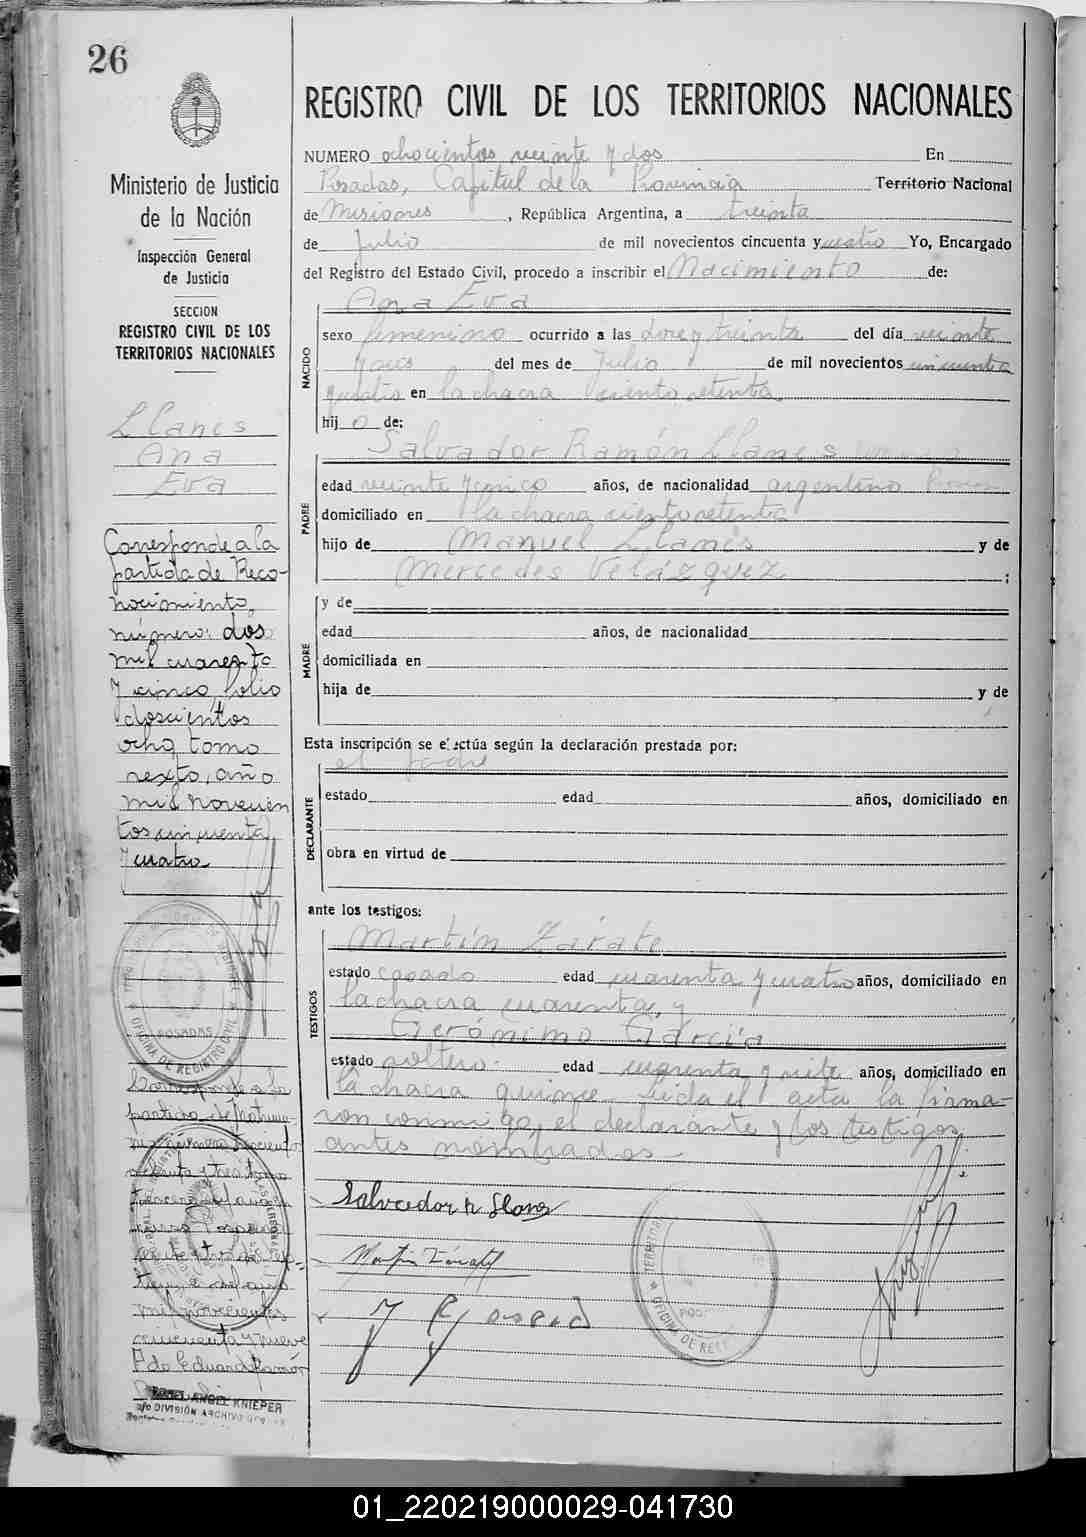 26
Ministerio de Justicia
de la Nación
Inspección General
de Justicia
SECCION
REGISTRO CIVIL DE LOS
TERRITORIOS NACIONALES
Llanes
Ana
Eva
Corresponde a la
partida de Reco-
nocimiento,
número: dos
mil cuarenta
y cinco, folio
doscientos
ocho, tomo
sexto, año
mil novecien
tos cincuenta
y cuatro
POSADAS
OFICINA DE REGISTRO CIVIL
Corresponde a la
partida de
mil novecientos
cincuenta y nueve
Fdo Eduardo Ramón
ANGEL KNIEPER
DIVISIÓN ARCHIVO
REGISTRO CIVIL DE LOS TERRITORIOS NACIONALES
NUMERO ochocientos veinte y dos En
Posadas, Capital de la Provincia Territorio Nacional
de Misiones, República Argentina, a treinta
de Julio de mil novecientos cincuenta y cuatro Yo, Encargado
del Registro del Estado Civil, procedo a inscribir el Nacimiento de:
NACIDO
Ana Eva
sexo femenino ocurrido a las doce y treinta del día veinte
del mes de Julio de mil novecientos cincuenta
cuatro en la chacra ciento setenta
hij a de:
PADRE
Salvador Ramón Llanes
edad veinte y cinco años, de nacionalidad argentino
domiciliado en la chacra ciento setenta
hijo de Manuel Llanes y de
Mercedes Velázquez ;
MADRE
y de
edad años, de nacionalidad
domiciliada en
hija de y de
Esta inscripción se efectúa según la declaración prestada por:
DECLARANTE
el padre
estado edad años, domiciliado en
obra en virtud de
ante los testigos:
TESTIGOS
Martín Zárate
estado casado edad cuarenta y cuatro años, domiciliado en
la chacra cuarenta, y
Gerónimo García
estado soltero. edad cuarenta y siete años, domiciliado en
la chacra quince. Leida el acta la firma-
ron conmigo, el declarante y los testigos
antes nombrados-
Salvador R Llanes
Martín Zárate
OFICINA DE REG
01_220219000029-041730